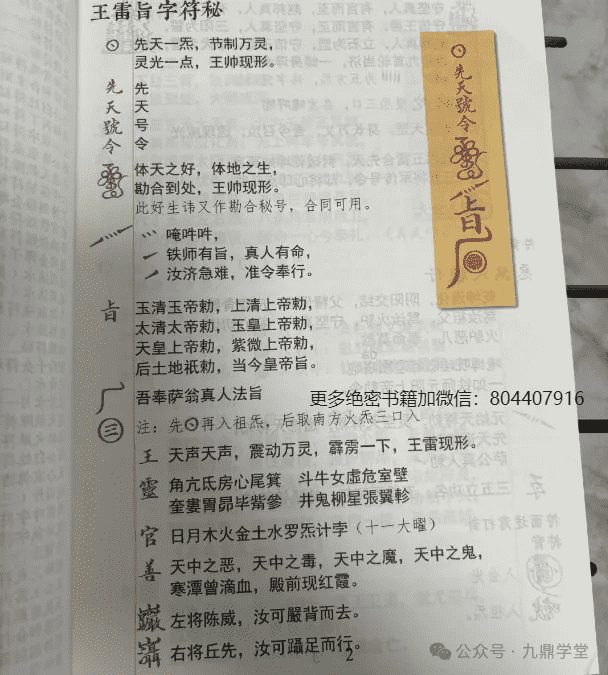 王雷旨字符秘
先天一炁，节制万灵，
灵光一点，王帅现形。
先天號令
先
天
号
令
体天之好，体地之生，
勘合到处，王帅现形。
此好生讳又作勘合秘号，合同可用。
唵吽吽，
铁师有旨，真人有命，
汝济急难，准令奉行。
玉清玉帝勅，上清上帝勅，
太清太帝勅，玉皇上帝勅，
天皇上帝勅，紫微上帝勅，
后土地祇勅，当今皇帝旨。
吾奉萨翁真人法旨
更多绝密书籍加微信：804407916
注：先⊙再入祖炁，后取南方火炁三口入
王 天声天声，震动万灵，霹雳一下，王雷现形。
靈 角亢氐房心尾箕 斗牛女虚危室壁
奎婁胃昴毕觜參 井鬼柳星張翼軫
官 日月木火金土水罗炁计孛（十一大曜）
善 天中之恶，天中之毒，天中之魔，天中之鬼，
寒潭曾滴血，殿前现红霞。
左将陈威，汝可嚴背而去。
右将丘先，汝可躡足而行。
2
公众号·九鼎学堂
先天號令